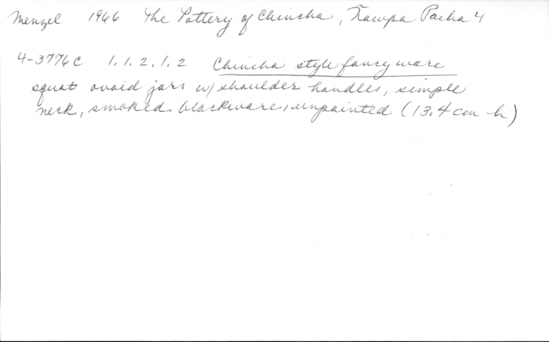 Menzel 1966 The Pottery of Chincha, Ñawpa Pacha 4
4-3776c 1.1.2.1.2 Chincha style fancy ware
squat ovoid jars w/ shoulder handles, simple
neck, smoked blackware, unpainted (13.4 cm h)